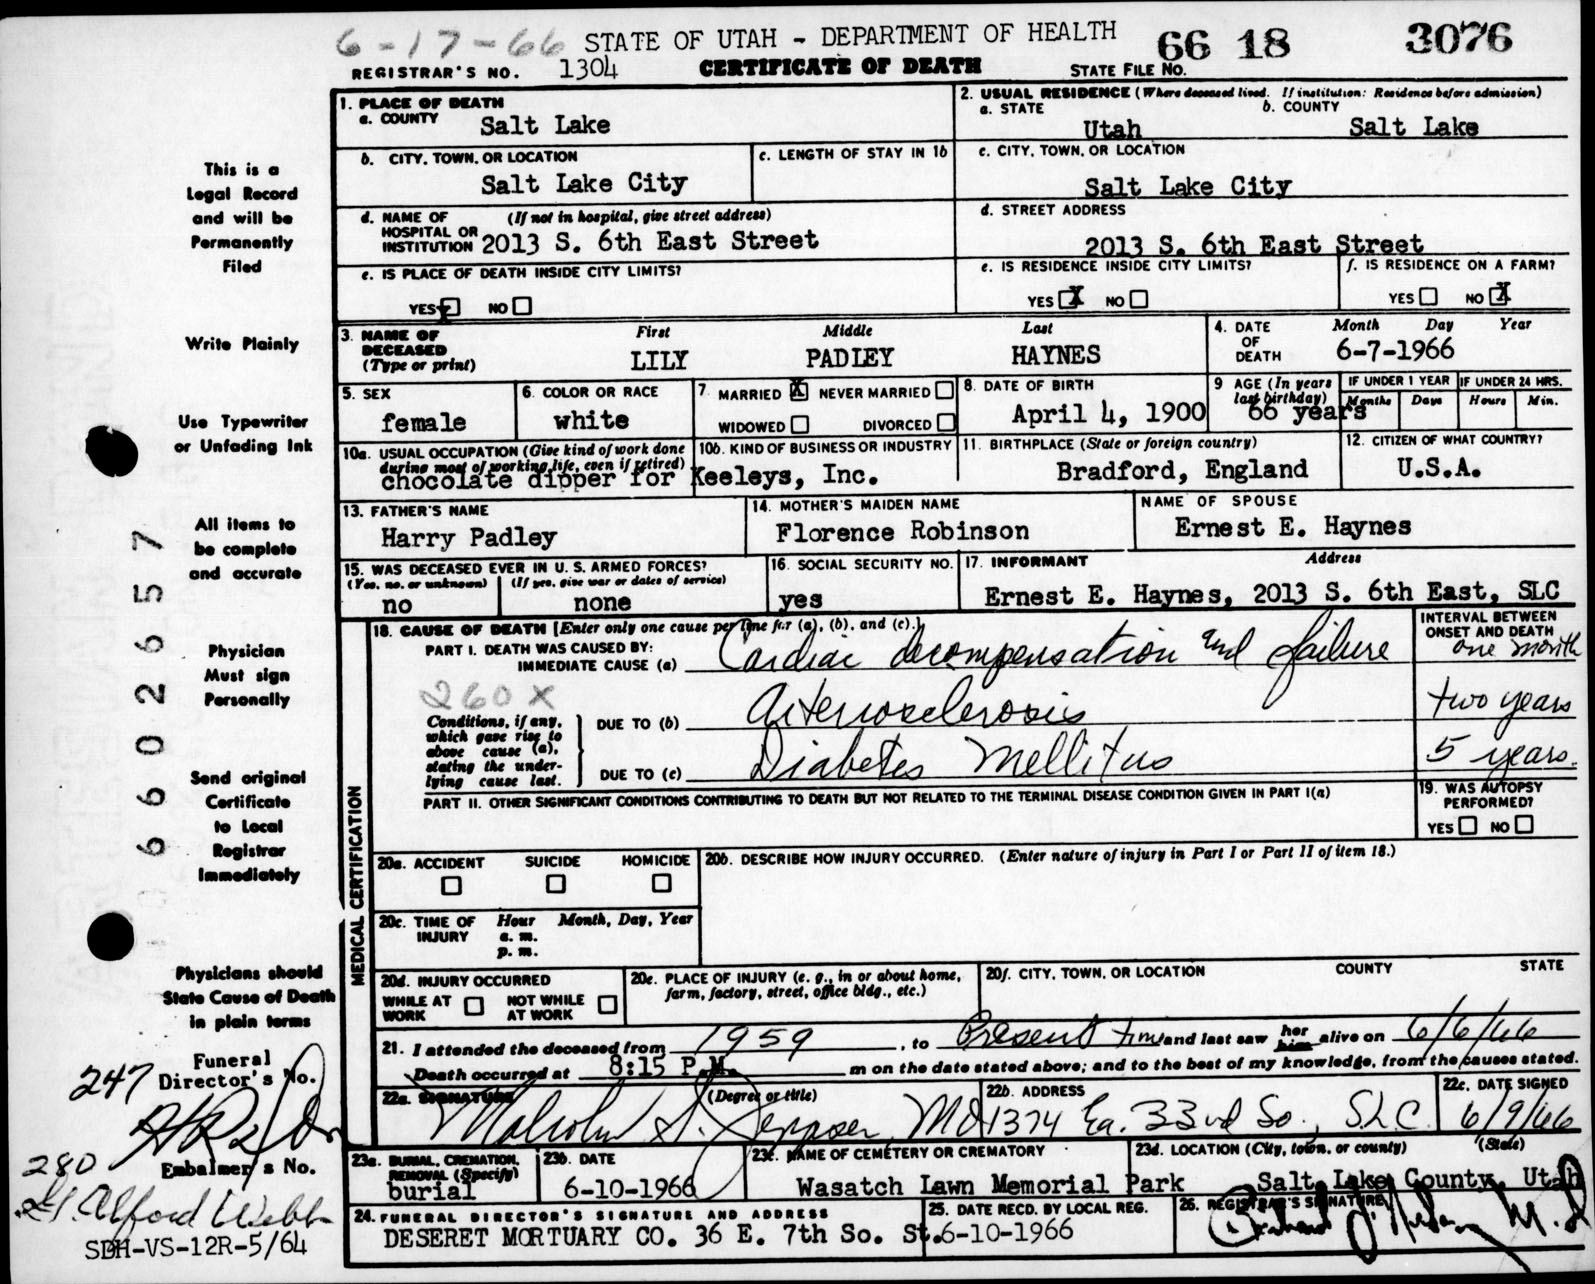 6-17-66 STATE OF UTAH - DEPARTMENT OF HEALTH 66 18 3076
REGISTRAR'S NO. 1304 CERTIFICATE OF DEATH STATE FILE NO.
1. PLACE OF DEATH
a. COUNTY Salt Lake
2. USUAL RESIDENCE (Where deceased lived. If institution: Residence before admission)
a. STATE Utah b. COUNTY Salt Lake
b. CITY, TOWN, OR LOCATION Salt Lake City
c. LENGTH OF STAY IN 1b
c. CITY, TOWN, OR LOCATION Salt Lake City
d. NAME OF HOSPITAL OR INSTITUTION (If not in hospital, give street address) 2013 S. 6th East Street
d. STREET ADDRESS 2013 S. 6th East Street
e. IS PLACE OF DEATH INSIDE CITY LIMITS?
YES X NO
e. IS RESIDENCE INSIDE CITY LIMITS?
YES X NO
f. IS RESIDENCE ON A FARM?
YES NO X
3. NAME OF DECEASED (Type or print)
First Middle Last
LILY PADLEY HAYNES
4. DATE OF DEATH Month Day Year
6-7-1966
5. SEX female
6. COLOR OR RACE white
7 MARRIED X NEVER MARRIED
WIDOWED DIVORCED
8. DATE OF BIRTH April 4, 1900
9 AGE (In years last birthday) 66 years
IF UNDER 1 YEAR Months Days
IF UNDER 24 HRS. Hours Min.
10a. USUAL OCCUPATION (Give kind of work done during most of working life, even if retired)
10b. KIND OF BUSINESS OR INDUSTRY
chocolate dipper for Keeleys, Inc.
11. BIRTHPLACE (State or foreign country) Bradford, England
12. CITIZEN OF WHAT COUNTRY? U.S.A.
13. FATHER'S NAME Harry Padley
14. MOTHER'S MAIDEN NAME Florence Robinson
NAME OF SPOUSE Ernest E. Haynes
15. WAS DECEASED EVER IN U. S. ARMED FORCES?
(Yes, no, or unknown) (If yes, give war or dates of service)
no none
16. SOCIAL SECURITY NO. yes
17. INFORMANT Address
Ernest E. Haynes, 2013 S. 6th East, SLC
MEDICAL CERTIFICATION
18. CAUSE OF DEATH [Enter only one cause per line for (a), (b), and (c).]
INTERVAL BETWEEN ONSET AND DEATH
PART I. DEATH WAS CAUSED BY:
IMMEDIATE CAUSE (a) Cardiac decompensation and failure one month
260 X
Conditions, if any, which gave rise to above cause (a), stating the underlying cause last.
DUE TO (b) Arteriosclerosis two years
DUE TO (c) Diabetes Mellitus 5 years.
PART II. OTHER SIGNIFICANT CONDITIONS CONTRIBUTING TO DEATH BUT NOT RELATED TO THE TERMINAL DISEASE CONDITION GIVEN IN PART I(a)
19. WAS AUTOPSY PERFORMED?
YES NO
20a. ACCIDENT SUICIDE HOMICIDE
20b. DESCRIBE HOW INJURY OCCURRED. (Enter nature of injury in Part I or Part II of item 18.)
20c. TIME OF INJURY Hour Month, Day, Year
a. m.
p. m.
20d. INJURY OCCURRED
WHILE AT WORK NOT WHILE AT WORK
20e. PLACE OF INJURY (e. g., in or about home, farm, factory, street, office bldg., etc.)
20f. CITY, TOWN, OR LOCATION COUNTY STATE
21. I attended the deceased from 1959, to Present time and last saw her him alive on 6/6/66
Death occurred at 8:15 P.M. m on the date stated above; and to the best of my knowledge, from the causes stated.
22a. SIGNATURE (Degree or title)
Malcolm MD
22b. ADDRESS 1374 Ea. 33rd So., S.L.C.
22c. DATE SIGNED 6/9/66
23a. BURIAL, CREMATION, REMOVAL (Specify) burial
23b. DATE 6-10-1966
23c. NAME OF CEMETERY OR CREMATORY Wasatch Lawn Memorial Park
23d. LOCATION (City, town, or county) (State)
Salt Lake County, Utah
24. FUNERAL DIRECTOR'S SIGNATURE AND ADDRESS
DESERET MORTUARY CO. 36 E. 7th So. St.
25. DATE RECD. BY LOCAL REG. 6-10-1966
26. REGISTRAR'S SIGNATURE
This is a
Legal Record
and will be
Permanently
Filed
Write Plainly
Use Typewriter
or Unfading Ink
All items to
be complete
and accurate
Physician
Must sign
Personally
Send original
Certificate
to Local
Registrar
Immediately
Physicians should
State Cause of Death
in plain terms
66026557
Funeral
247 Director's No.
280 Embalmer's No.
Alford Webb
SDH-VS-12R-5/64